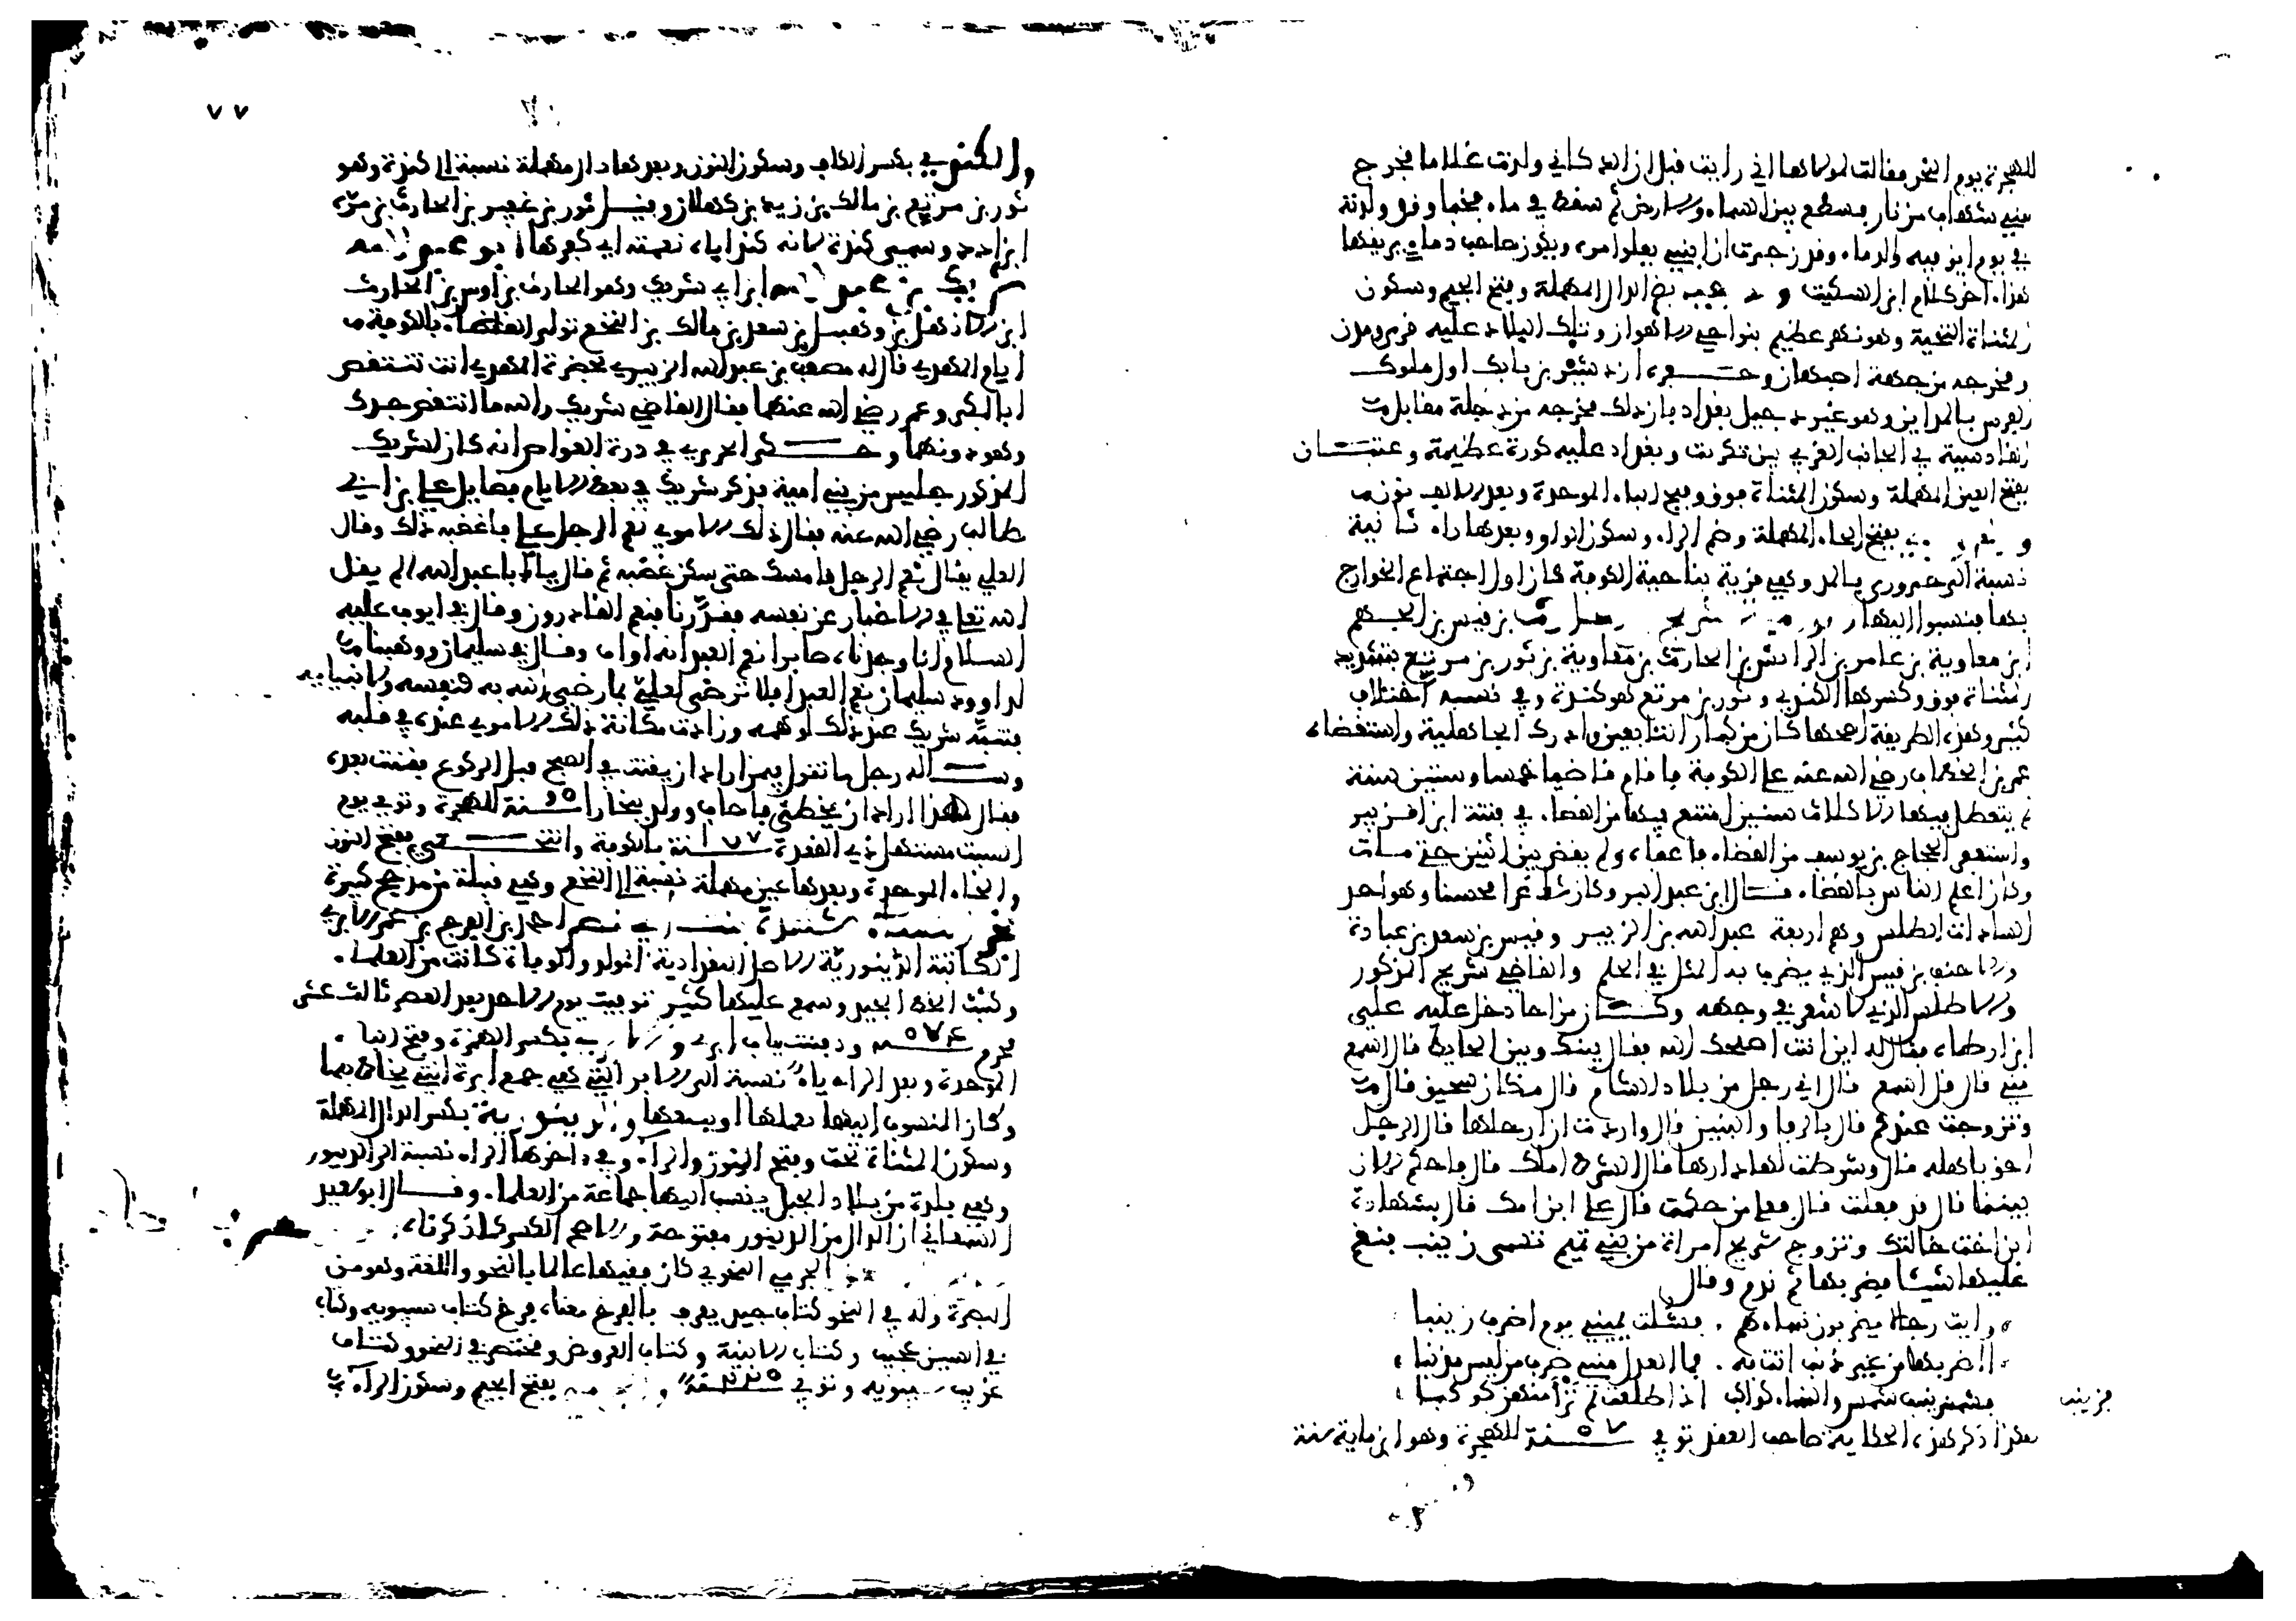 للهجرة يوم النحر فقالت لمولاتها اني رايت قبل ان الد كاني ولدت غلاما فخرج
مني شهاب من نار فسطع بين السماء والارض ثم سقط في ماء فخبا وقد ولدته
في يوم اريق فيه الدماء وقد زجرت ان ابني يعلو امره ويكون صاحب دماء يريقها
هذا اخر كلام ابن السكيت و دجيل بضم الدال المهملة وفتح الجيم وسكون
المثناة التحتية وهو نهر عظيم بنواحي الاهواز وتلك البلاد عليه قرى ومدن
ومخرجه من جهة اصبهان وحفره ازدشير بن بابك اول ملوك
الفرس بالمداين وهو غير دجيل بغداد فان ذلك مخرجه من دجلة مقابل
القادسية في الجانب الغربي بين تكريت وبغداد عليه كورة عظيمة وعتبان
بفتح العين المهملة وسكون المثناة فوق وفتح الباء الموحدة وبعد الالف نون
بفتح الحاء المهملة وضم الراء وسكون الواو وبعدها راء ثانية
نسبة الى حروري بالمد وهي قرية بناحية الكوفة كان اول اجتماع الخوارج
بها فنسبوا اليها شريح بن قيس بن الجهم
بن معاوية بن عامر بن الرائش بن الحارث بن معاوية بن ثور بن مرتع بتشديد
المثناة فوق وكسرها الكندي وثور بن مرتع هو كندة وفي نسبه اختلاف
كثير وهذه الطريقة اصحها كان من كبار التابعين وادرك الجاهلية واستقضاه
عمر بن الخطاب رضي الله عنه على الكوفة فاقام قاضيا خمسا وستين سنة
لم يتعطل فيها الا ثلاث سنين امتنع فيها من القضاء في فتنة ابن الزبير
واستعفى الحجاج بن يوسف من القضاء فاعفاه ولم يقض بين اثنين حتى مات
وكان اعلم الناس بالقضاء قال ابن عبد البر وكان شاعرا محسنا وهو احد
السادات الطلس وهم اربعة عبد الله بن الزبير وقيس بن سعد بن عبادة
والاحنف بن قيس الذي يضرب به المثل في الحلم والقاضي شريح المذكور
والاطلس الذي لا شعر في وجهه وكان مزاحا دخل عليه عدي
ابن ارطاه فقال له اين انت اصلحك الله فقال بينك وبين الحايط قال اسمع
مني قال قل اسمع قال اني رجل من بلاد الشام قال مكان سحيق قال
وتزوجت عندكم قال بالرفا والبنين قال واردت ان ارحلها قال الرجل
احق باهله قال وشرطت لها دارها قال الشرط املك قال فاحكم الان
بيننا قال قد فعلت قال فعلى من حكمت قال على ابن امك قال بشهادة
ابن اخت خالتك وتزوج شريح امراة من بني تميم تسمى زينب فنقم
عليها شيئا فضربها ثم ندم وقال
رايت رجالا يضربون نساءهم فشلت يميني يوم اضرب زينبا
ااضربها من غير ذنب اتت به فما العدل مني ضرب من ليس مذنبا
فزينب شمس والنساء كواكب اذا طلعت لم تر منهن كوكبا
فزينب
هكذا ذكر هذه الحكاية صاحب العقد توفي سنة للهجرة وهو ابن ماية سنة
٧٧
والكندي بكسر الكاف وسكون النون وبعدها دال مهملة نسبة الى كندة وهو
ثور بن مرتع بن مالك بن زيد بن كهلان وقيل ثور بن عفير بن الحارث بن مرة
ابن ادد وسمي كندة لانه كند اباه نعمته اي كفرها ابو عبد الله
شريك بن عبد الله ابن ابي شريك وهو الحارث بن اوس بن الحارث
ابن ذهل بن وهبيل بن سعد بن مالك بن النخع تولى القضاء بالكوفة
ايام المهدي قال له مصعب بن عبد الله الزبيري بحضرة المهدي انت تنتقص
ابا بكر وعمر رضي الله عنهما فقال القاضي شريك والله ما انتقص جدك
وهو دونهما وحكى الحريري في درة الغواص انه كان لشريك
المذكور جليس من بني امية فذكر شريك في بعض الايام فضايل علي بن ابي
طالب رضي الله عنه فقال ذلك الاموي نعم الرجل علي فاغضبه ذلك وقال
العلي يقال نعم الرجل فامسك حتى سكن غضبه ثم قال يا ابا عبد الله الم يقل
الله تعالى في الاخبار عن نفسه فقدرنا فنعم القادرون وقال في ايوب عليه
السلام انا وجدناه صابرا نعم العبد انه اواب وقال في سليمان ووهبنا
لداوود سليمان نعم العبد افلا ترضى لعلي بما رضي الله به لنفسه ولانبيايه
فتنبه شريك عند ذلك لوهمه وزادت مكانة ذلك الاموي عنده في قلبه
وساله رجل ما تقول فيمن اراد ان يقنت في الصبح قبل الركوع فقنت بعده
فقال هذا اراد ان يخطئ فاصاب وولد ببخارا سنة ٩٥ للهجرة وتوفي يوم
السبت مستهل ذي القعدة سنة ١٧٧ بالكوفة والنخعي بفتح النون
والخاء الموحدة وبعدها عين مهملة نسبة الى النخع وهي قبيلة من مذحج كبيرة
شهدة بنت ابي نصر احمد بن الفرج بن عمر الابري
الكاتبة الدينورية الاصل البغدادية المولد والوفاة كانت من العلماء
وكتبت الخط الجيد وسمع عليها كثير توفيت يوم الاحد بعد العصر ثالث عشر
محرم سنة ٥٧٤ ودفنت بباب ابرز والابري بكسر الهمزة وفتح الباء
الموحدة وبعد الراء ياء نسبة الى الابر التي هي جمع ابرة التي يخاط بها
وكان المنسوب اليها يعملها او يبيعها والدينورية بكسر الدال المهملة
وسكون المثناة تحت وفتح النون والراء وفي اخرها الراء نسبة الى الدينور
وهي بلدة من بلاد الجبل ينسب اليها جماعة من العلماء وقال ابو سعد
السمعاني ان الدال من الدينور مفتوحة والاصح الكسر كما ذكرناه
الجرمي النحوي كان فقيها عالما بالنحو واللغة وهو من
البصرة وله في النحو كتاب جيد يعرف بالفرخ معناه فرخ كتاب سيبويه وكتاب
في السير عجيب وكتاب الابنية وكتاب العروض ومختصر في النحو وكتاب
غريب سيبويه وتوفي سنة ٢٢٥ بفتح الجيم وسكون الراء